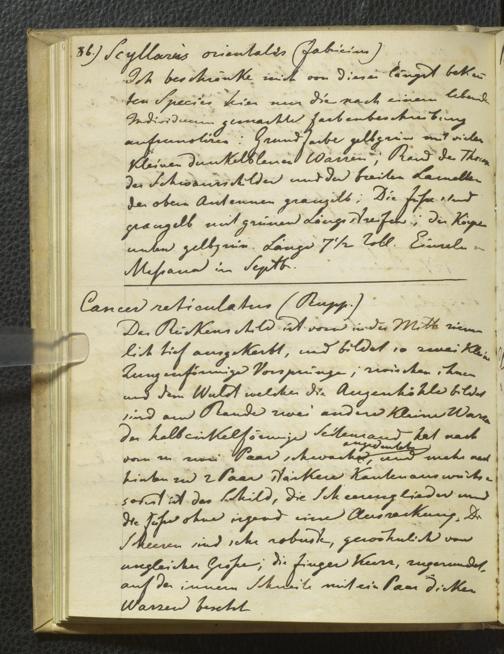 36.) Scyllarus orientalis (Fabricius)
Ich beschränke mich von dieser längst bekan
ten Species hier nur die nach einem lebende
Individuum gemachte Farbenbeschreibung
aufzunotiren: Grundfarbe gelbgrün mit vielen
kleinen dunkelblauen Warzen; Rand des Thorax
der Schwanzschilder und der breiten Lamellen
der obern Antennen graugelb; Die Füße sind
graugelb mit grünen Längsstreifen; der Körper
unten gelbgrün. Länge 7½ Zoll. Einzeln in
Messina im Septb.
Cancer reticulatus (Rupp.)
Der Rückenschild ist vorn in der Mitte ziem
lich tief ausgekerbt, und bildet so zwei kleine
Zungenförmige Vorsprünge; zwischen ihnen
und dem Wulst welcher die Augenhöhle bildet
sind am Rande zwei andere kleine Warzen
der halbzirkelförmige Seitenrand hat nach
vorn zu zwei Paar schwache angedeutete, und mehr nach
hinten zu 2 Paar stärkere Kantenauswüchse
sonst ist das Schild, die Scheerenglieder und
die Füße ohne irgend eine Auszackung. Die
Scheeren sind sehr robuste, gewöhnlich von
ungleicher Größe; die Finger kurz, zugerundet,
auf der innern Schneide mit ein Paar dicken
Warzen besetzt